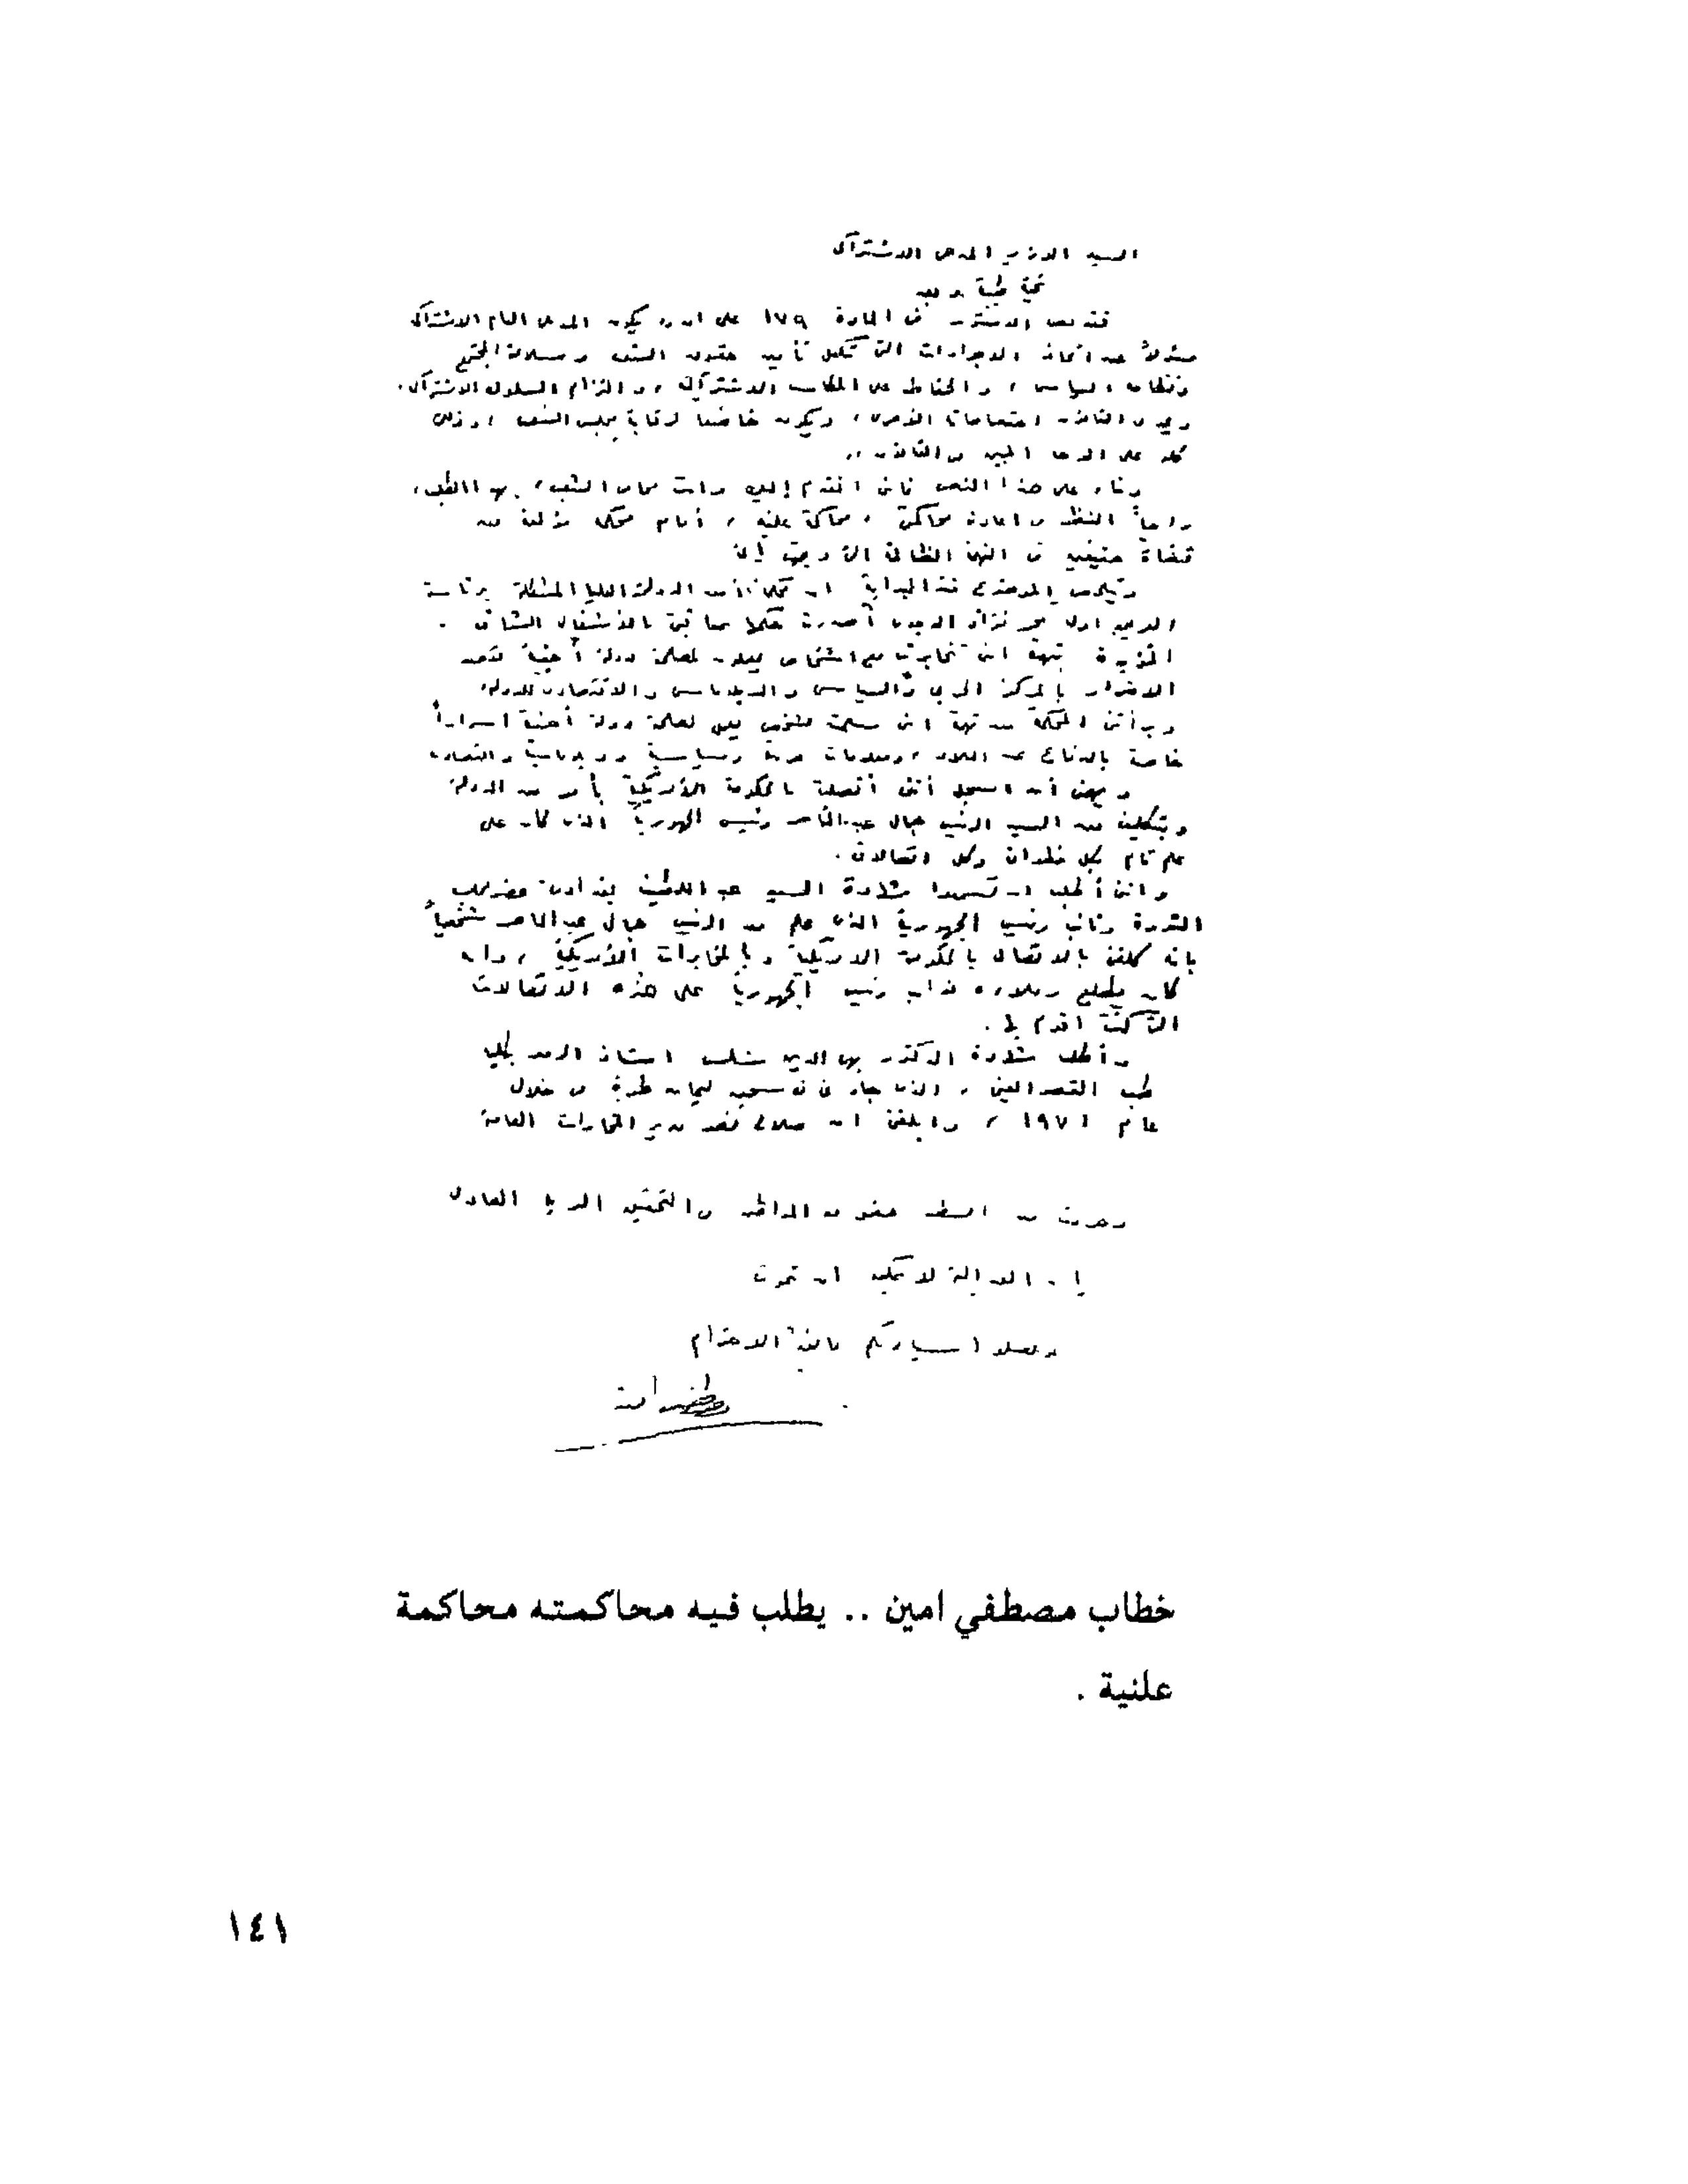 السيد الوزير المدعى الاشتراكى
تحية طيبة وبعد
فقد نص الدستور فى المادة ١٧٩ على ان يكون المدعى العام الاشتراكى
مسئولاً عن اتخاذ الاجراءات التى تكفل تأمين حقوق الشعب وسلامة المجتمع
ونظامه السياسى ، والحفاظ على المكاسب الاشتراكية ، والتزام السلوك الاشتراكى .
ويحدد القانون اختصاصاته الأخرى ، ويكون خاضعا لرقابة مجلس الشعب ، وذلك
كله على الوجه المبين فى القانون ..
وبناء على هذا النص فانى اتقدم إليك وانت محامى الشعب ، بهذا الطلب ،
راجياً النظر فى اعادة محاكمتى ، محاكمة علنية ، أمام محكمة مؤلفة من
قضاة حقيقيين فى التهم الظالمة التى وجهت إلى
ويتلخص الموضوع فى البداية ان محكمة أمن الدولة العليا المشكلة برئاسة
الفريق اول محمد فؤاد الدجوى أصدرت حكما بمعاقبتى بالأشغال الشاقة
المؤبدة بتهمة اننى تخابرت مع اشخاص يعملون لمصلحة دولة أجنبية بقصد
الاضرار بالمركز الحربى والسياسى والدبلوماسى والاقتصادى للدولة
وبرأتنى المحكمة من تهمة اننى سلمت لشخص يعمل لمصلحة دولة أجنبية اسراراً
خاصة بالدفاع عن البلاد ، ومعلومات حربية وسياسية ودبلوماسية واقتصادية
ويهمنى أن اسجل أننى اتصلت بالحكومة الأمريكية بأمر من الدولة
وبتكليف من السيد الرئيس جمال عبد الناصر رئيس الجمهورية الذى كان على
علم تام بكل خطواتى وكل اتصالاتى .
واننى أطلب ان تسمعوا شهادة السيد عبد اللطيف بغدادى عضو مجلس
الثورة ونائب رئيس الجمهورية الذى علم من الرئيس جمال عبد الناصر شخصياً
بانه كلفنى بالاتصال بالحكومة الامريكية وبالمخابرات الأمريكية ، وانه
كان يطلع زملاءه نواب رئيس الجمهورية على هذه الاتصالات
التى كنت اقوم بها .
وأطلب شهادة الدكتور بهى الدين شلبى استاذ الرمد بكلية
طب القصر العينى ، الذى جاءنى فى سجن ليمان طرة فى خلال
عام ١٩٧١ ، وابلغنى ان صلاح نصر مدير المخابرات العامة
حرمت من ابسط حقوق المواطن فى التحقيق النزيه العادل
إن العدالة لا يمكن ان تموت
وتفضلوا سيادتكم بقبول الاحترام
مصطفى امين
خطاب مصطفي امين .. يطلب فيه محاكمته محاكمة
علنية .
١٤١